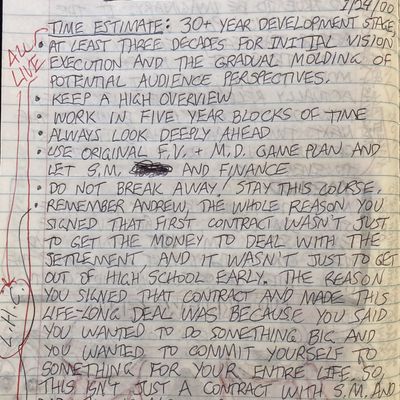 1/24/00
TIME ESTIMATE: 30+ YEAR DEVELOPMENT STAGE,
ALL LIVE
• AT LEAST THREE DECADES FOR INITIAL VISION
EXECUTION AND THE GRADUAL MOLDING OF
POTENTIAL AUDIENCE PERSPECTIVES.
• KEEP A HIGH OVERVIEW
• WORK IN FIVE YEAR BLOCKS OF TIME
• ALWAYS LOOK DEEPLY AHEAD
• USE ORIGINAL F.V. + M.D. GAME PLAN AND
LET S.M. AND FINANCE
• DO NOT BREAK AWAY! STAY THIS COURSE.
• REMEMBER ANDREW, THE WHOLE REASON YOU
SIGNED THAT FIRST CONTRACT WASN'T JUST
TO GET THE MONEY TO DEAL WITH THE
SETTLEMENT, AND IT WASN'T JUST TO GET
OUT OF HIGH SCHOOL EARLY. THE REASON
YOU SIGNED THAT CONTRACT AND MADE THIS
LIFE-LONG DEAL WAS BECAUSE YOU SAID
YOU WANTED TO DO SOMETHING BIG AND
YOU WANTED TO COMMIT YOURSELF TO
SOMETHING FOR YOUR ENTIRE LIFE. SO,
THIS ISN'T JUST A CONTRACT WITH S.M. AND